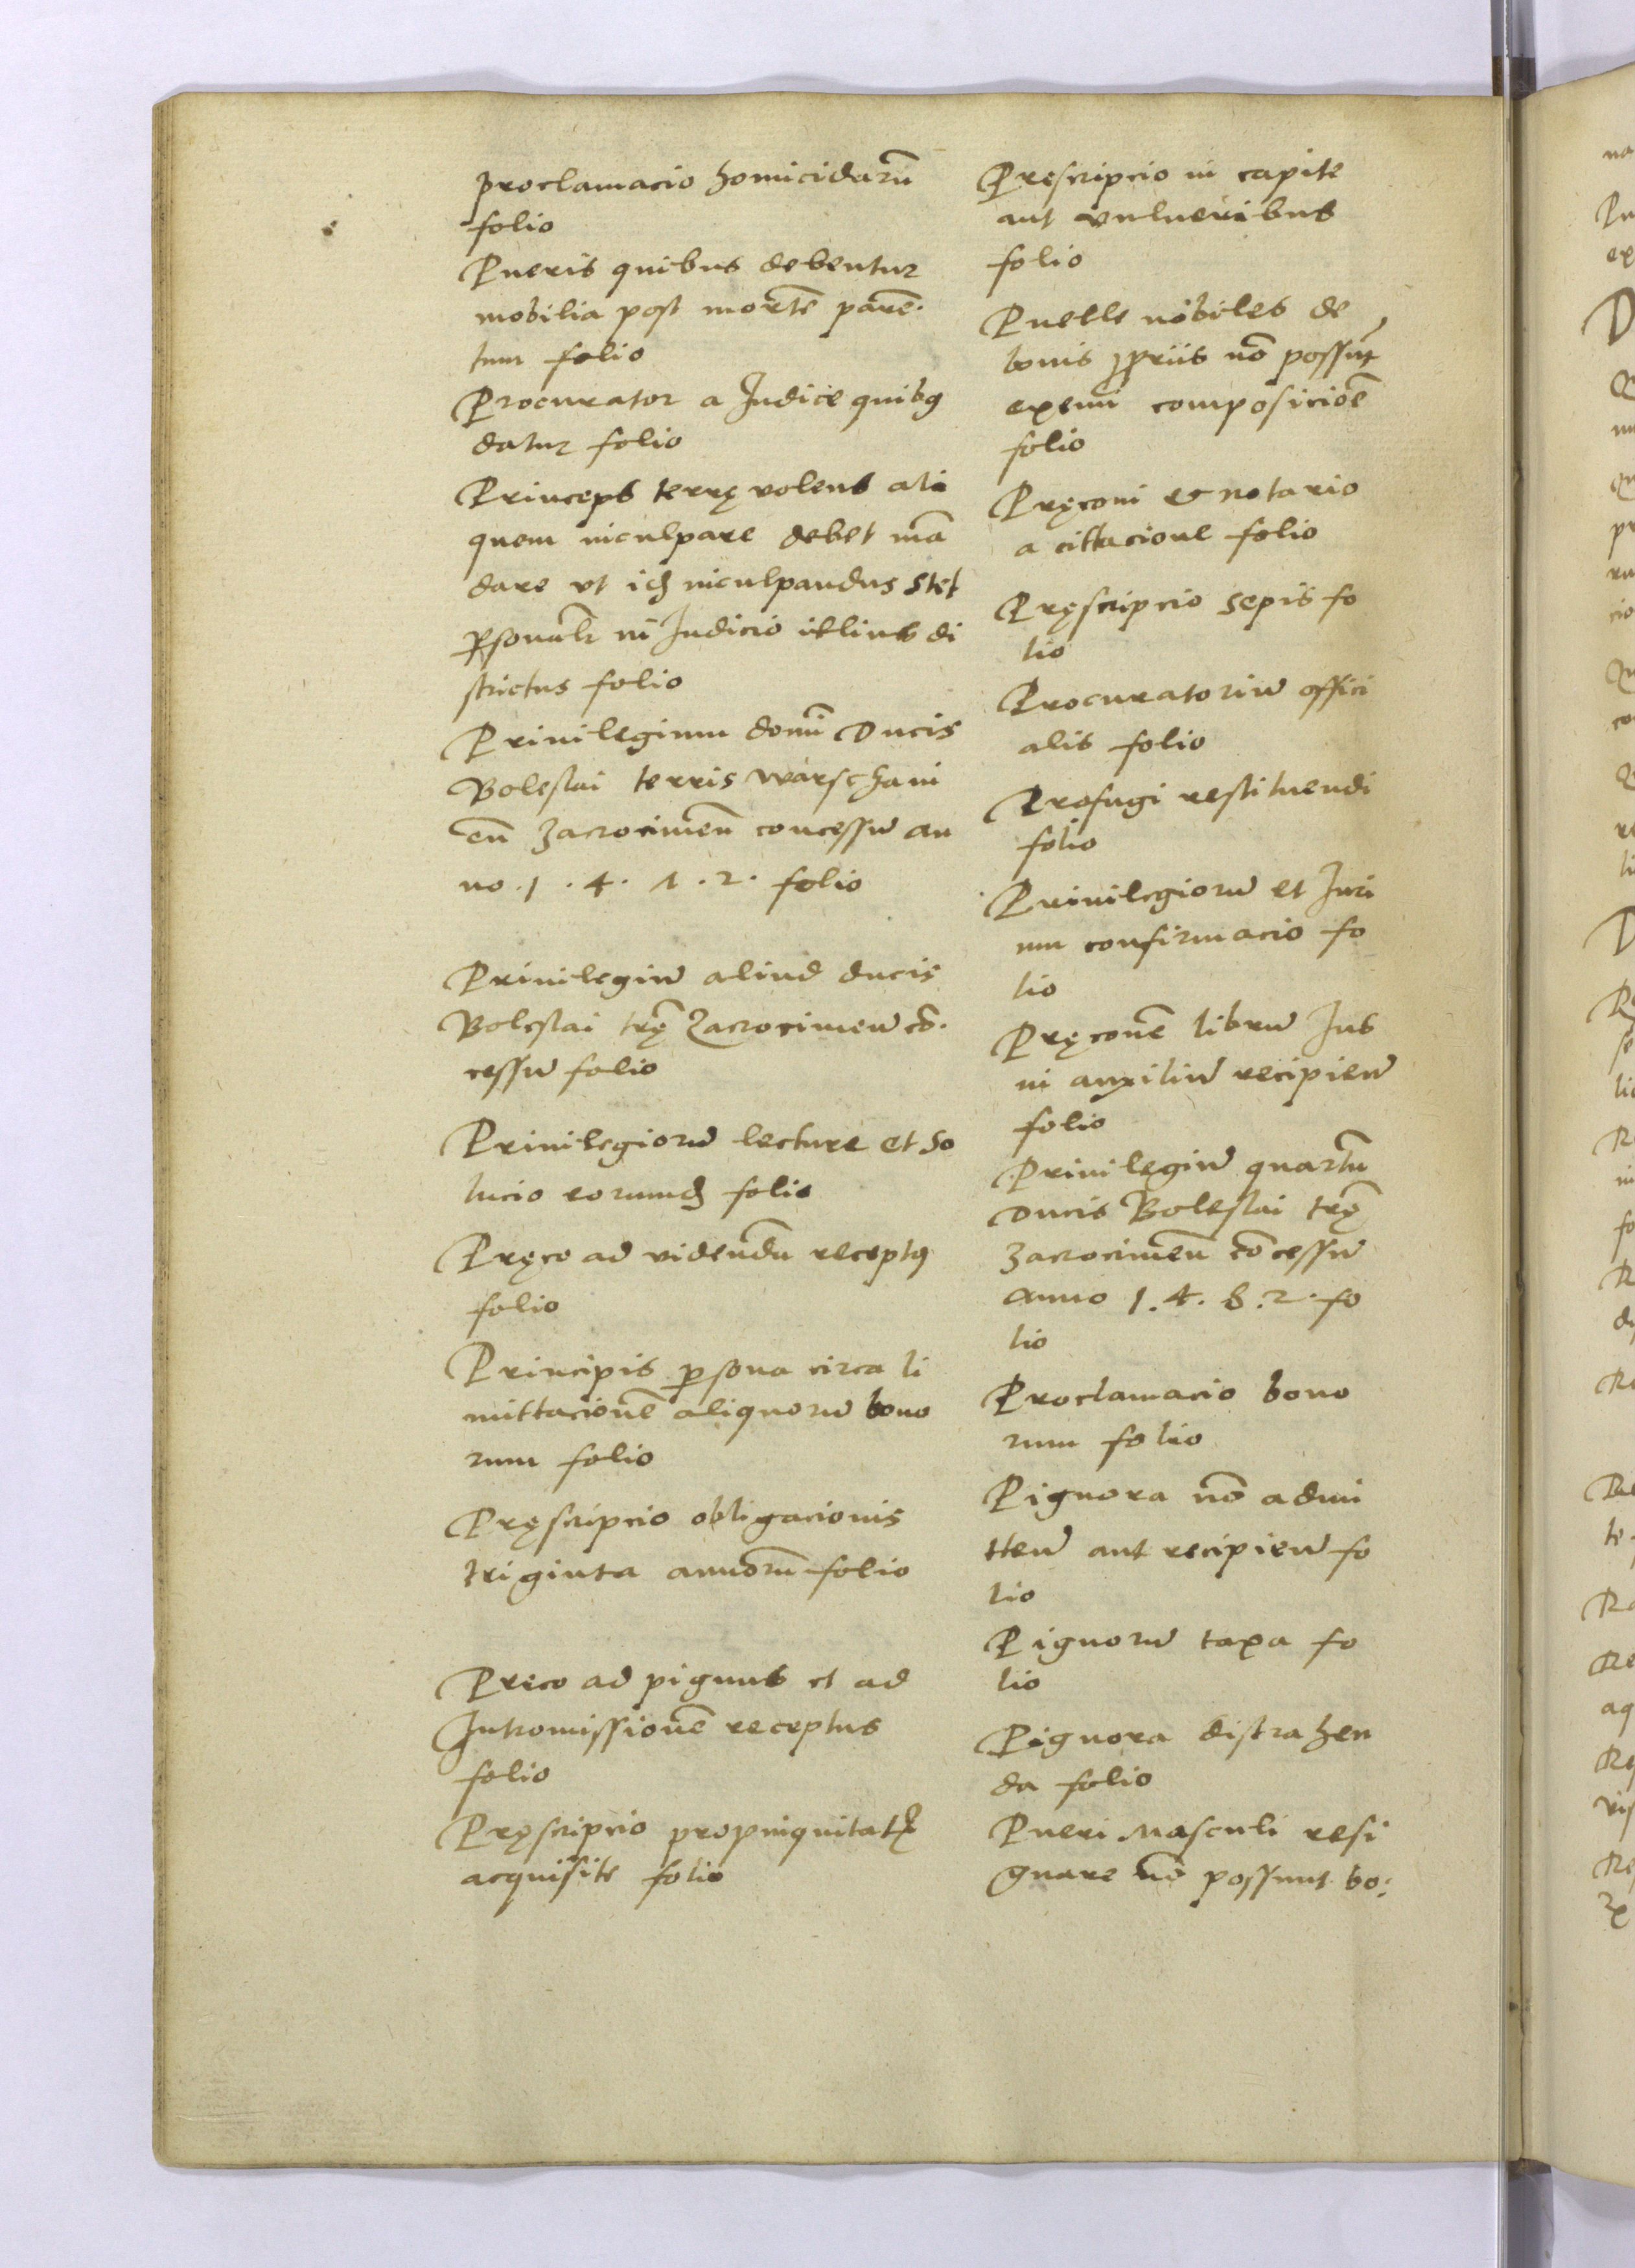 proclamacio homicidarū
folio
Pueris quibus debentur
mobilia post mortē paren-
tum folio
Procurator a Judice quibꝯ
datur folio
Princeps terrę volens ali
quem inculpare debet mā
dare vt is inculpandus stet
ꝑsonalr̄ in Judicio illius di
strictus folio
Priuilegium domī Ducis
Boleslai terris warschaui
en̄ Zacrocimen̄ concessū an
no .1.4.8.2. folio
Priuilegiū aliud ducis
Boleslai trę̄ Zacrocimen̄ cō-
cessū folio
Priuilegiorū lecture et so
lucio eorumdꝫ folio
Pręco ad videndū receptꝯ
folio
Principis ꝑsona circa li
mittacionē aliquorū bono
rum folio
Pręscripcio obligacionis
triginta annorū folio
Preco ad pignus et ad
Intromissionē receptus
folio
Pręscripcio propinquitatꝭ
acquisite folio
Pręscripcio in capite
aut vulneribus
folio
Puelle nobiles de
bonis ꝓpriis nō possūt
exemi composicionē
folio
Pręconi et notario
a cittacione folio
Pręscripcio sepis fo
lio
Procuratoriū offici
alis folio
Profugi restituendi
folio
Priuilegiorū et Juri
um confirmacio fo
lio
Pręconē librū Jus
in auxiliū recipien̄
folio
Priuilegiū quartū
Ducis Boleslai trę̄
Zacrocimen̄ cōcessū
anno 1.4.8.2. fo
lio
Proclamacio bono
rum folio
Pignora nō admi
tten̄ aut recipien̄ fo
lio
Pignorū taxa fo
lio
Pignora distrahen
da folio
Pueri Masculi resi
gnare nō possunt bo: